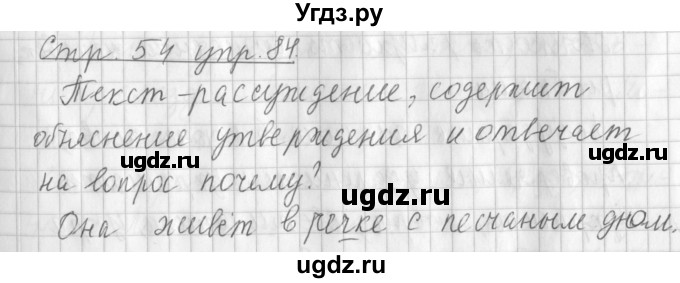 Угдз.ру
Стр. 54 упр. 84.
Текст-рассуждение, содержит
объяснение утверждения и отвечает
ugdz.ru ugdz.ru
на вопрос почему?
ugdz.ru
Она живёт в речке с песчаным дном.
ugdz.ru